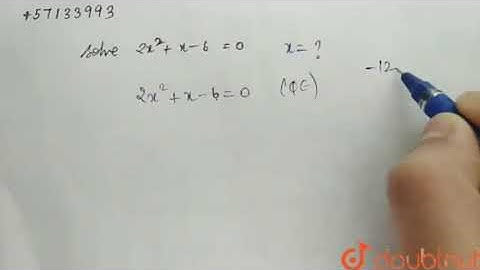 +57133993
solve 2x²+x-6=0 x=?
2x²+x-6=0 (QE)
-12
doubtnut